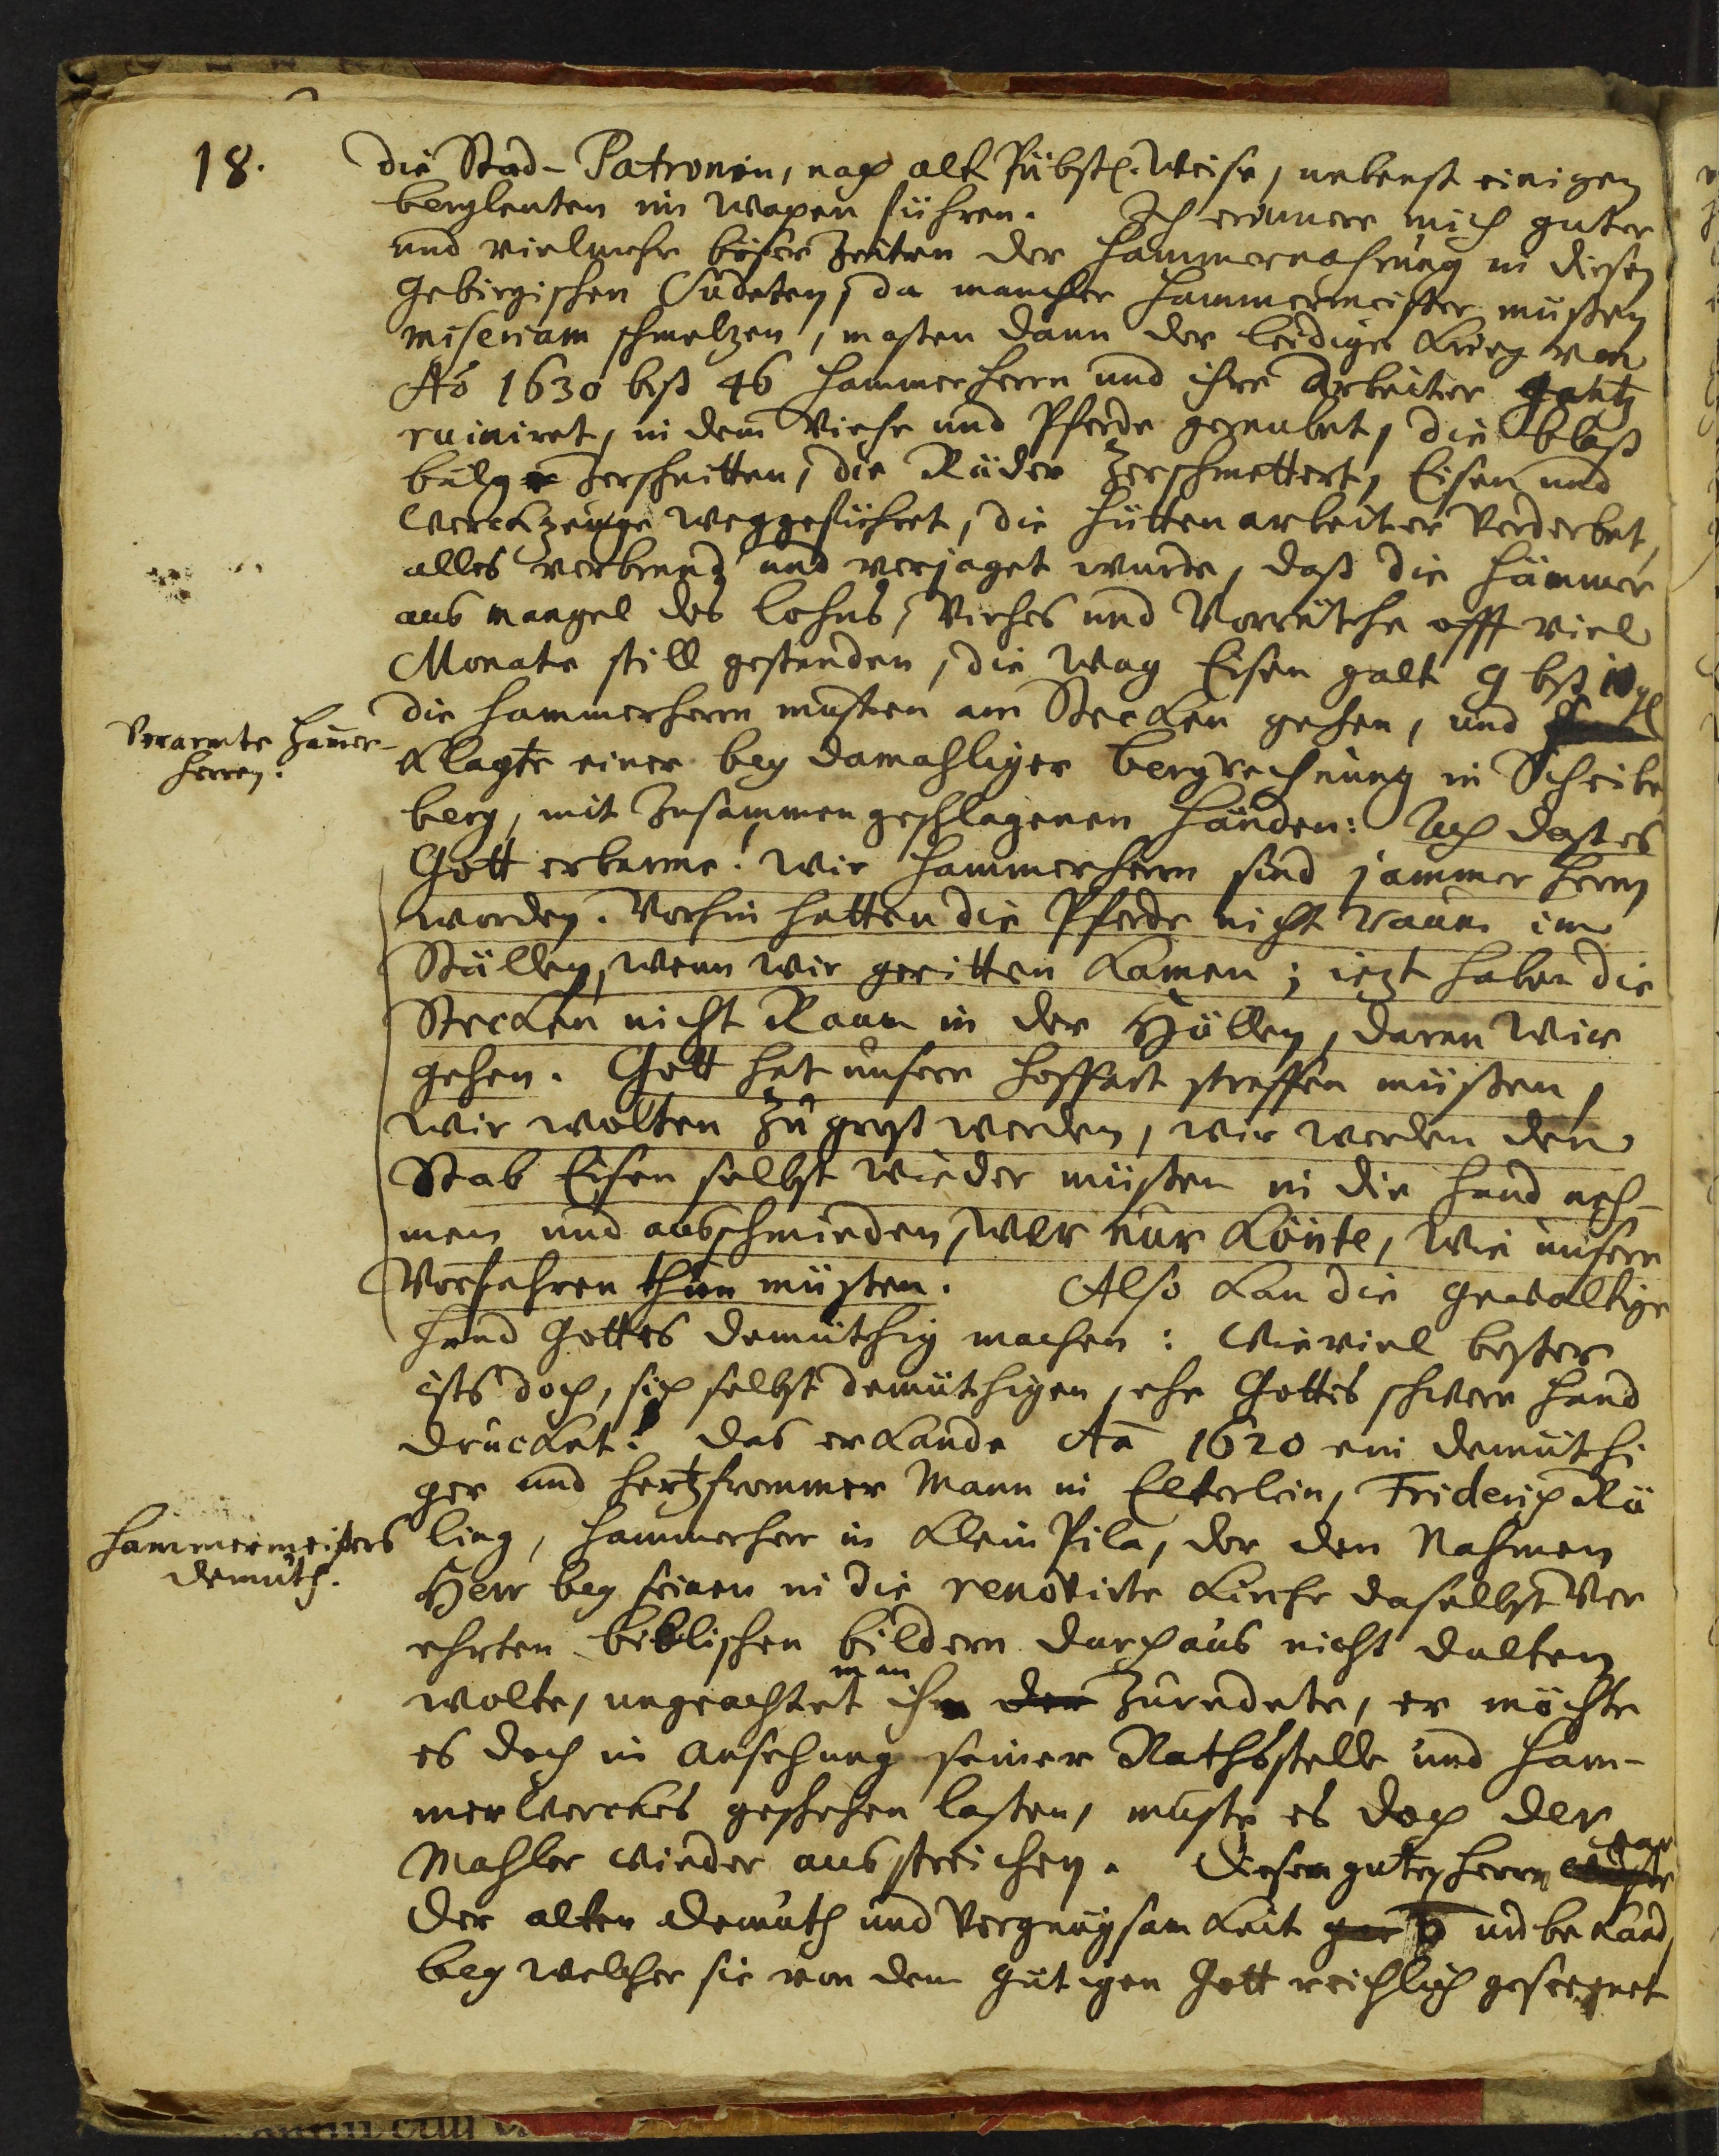 18.
die Stad-Patronin, nach alt Päbstl. Weise, nebenst einigen
bergleuten im Wapen führen. Ich erinnere mich guter
und vielmehr böser Zeiten der Hammernahrung in diesen
Gebirgischen Sudeten, da mancher Hammermeister mußen
miseriam schmelzen, maßen dann der leidige Krieg von
Ao 1630 biß 46 Hammerherrn und ihre Arbeiter gantz
ruiniret, in dem Viehe und Pferde geraubet, die blaß
bälge zerschnitten, die Räder zerschmettert, Eisen und
Werckzeuge weggeführet, die Hüttenarbeiter verderbet,
alles verbrend und verjaget wurde, daß die Hämmer
aus mangel des lohns, Viehes und Vorräthe offt viel
Monate still gestanden, die Wag Eisen galt 9 biß 10 gl
Verarmte Hamer-
herren.
die Hammerherrn musten am Stecken gehen, und
klagte einer bey damahliger bergrechnung in Scheibe
berg, mit Zusammen geschlagenen Händen: Ach daß es
Gott erbarme! wir Hammerherrn sind jammer herrn
worden. Vorhin hatten die Pferde nicht raum im
Ställen, wenn wir geritten kamen; iezt haben die
Stecken nicht Raum in der Höllen, daran wir
gehen. Gott hat unsere hoffart straffen müßen,
wir wolten Zu groß werden, wir werden den
Stab Eisen selbst wieder müßen in die hand neh-
men und ausschmieden, wer nur könte, wie unsere
Vorfahren thun müsten. Also kan die gewaltige
Hand Gottes demüthig machen: Wieviel beßer
ists doch, sich selbst demüthigen, ehe Gottes schwere Hand
drucket! das erkande Ao 1620 ein demüthi
ger und hertzfrommer Mann in Elterlein, Friderich Rü
Hammermeisters
demuth.
ling, Hammerherr in klein Pila, der den Nahmen
Herr bey seinen in die renovirte Kirche daselbst ver
ehrten biblischen bildern durchaus nicht dulten
wolte, ungeachtet man ihm der Zuredete, er möchte
es doch in ansehung seiner Rathsstelle und Ham-
merWerckes geschehen laßen, muste es doch der
Mahler wieder ausstreichen. Diesem guten Herrn war
der alten demuth und Vergnügsamkeit unbekand,
bey welcher sie von dem gütigen Gott reichlich geseegnet